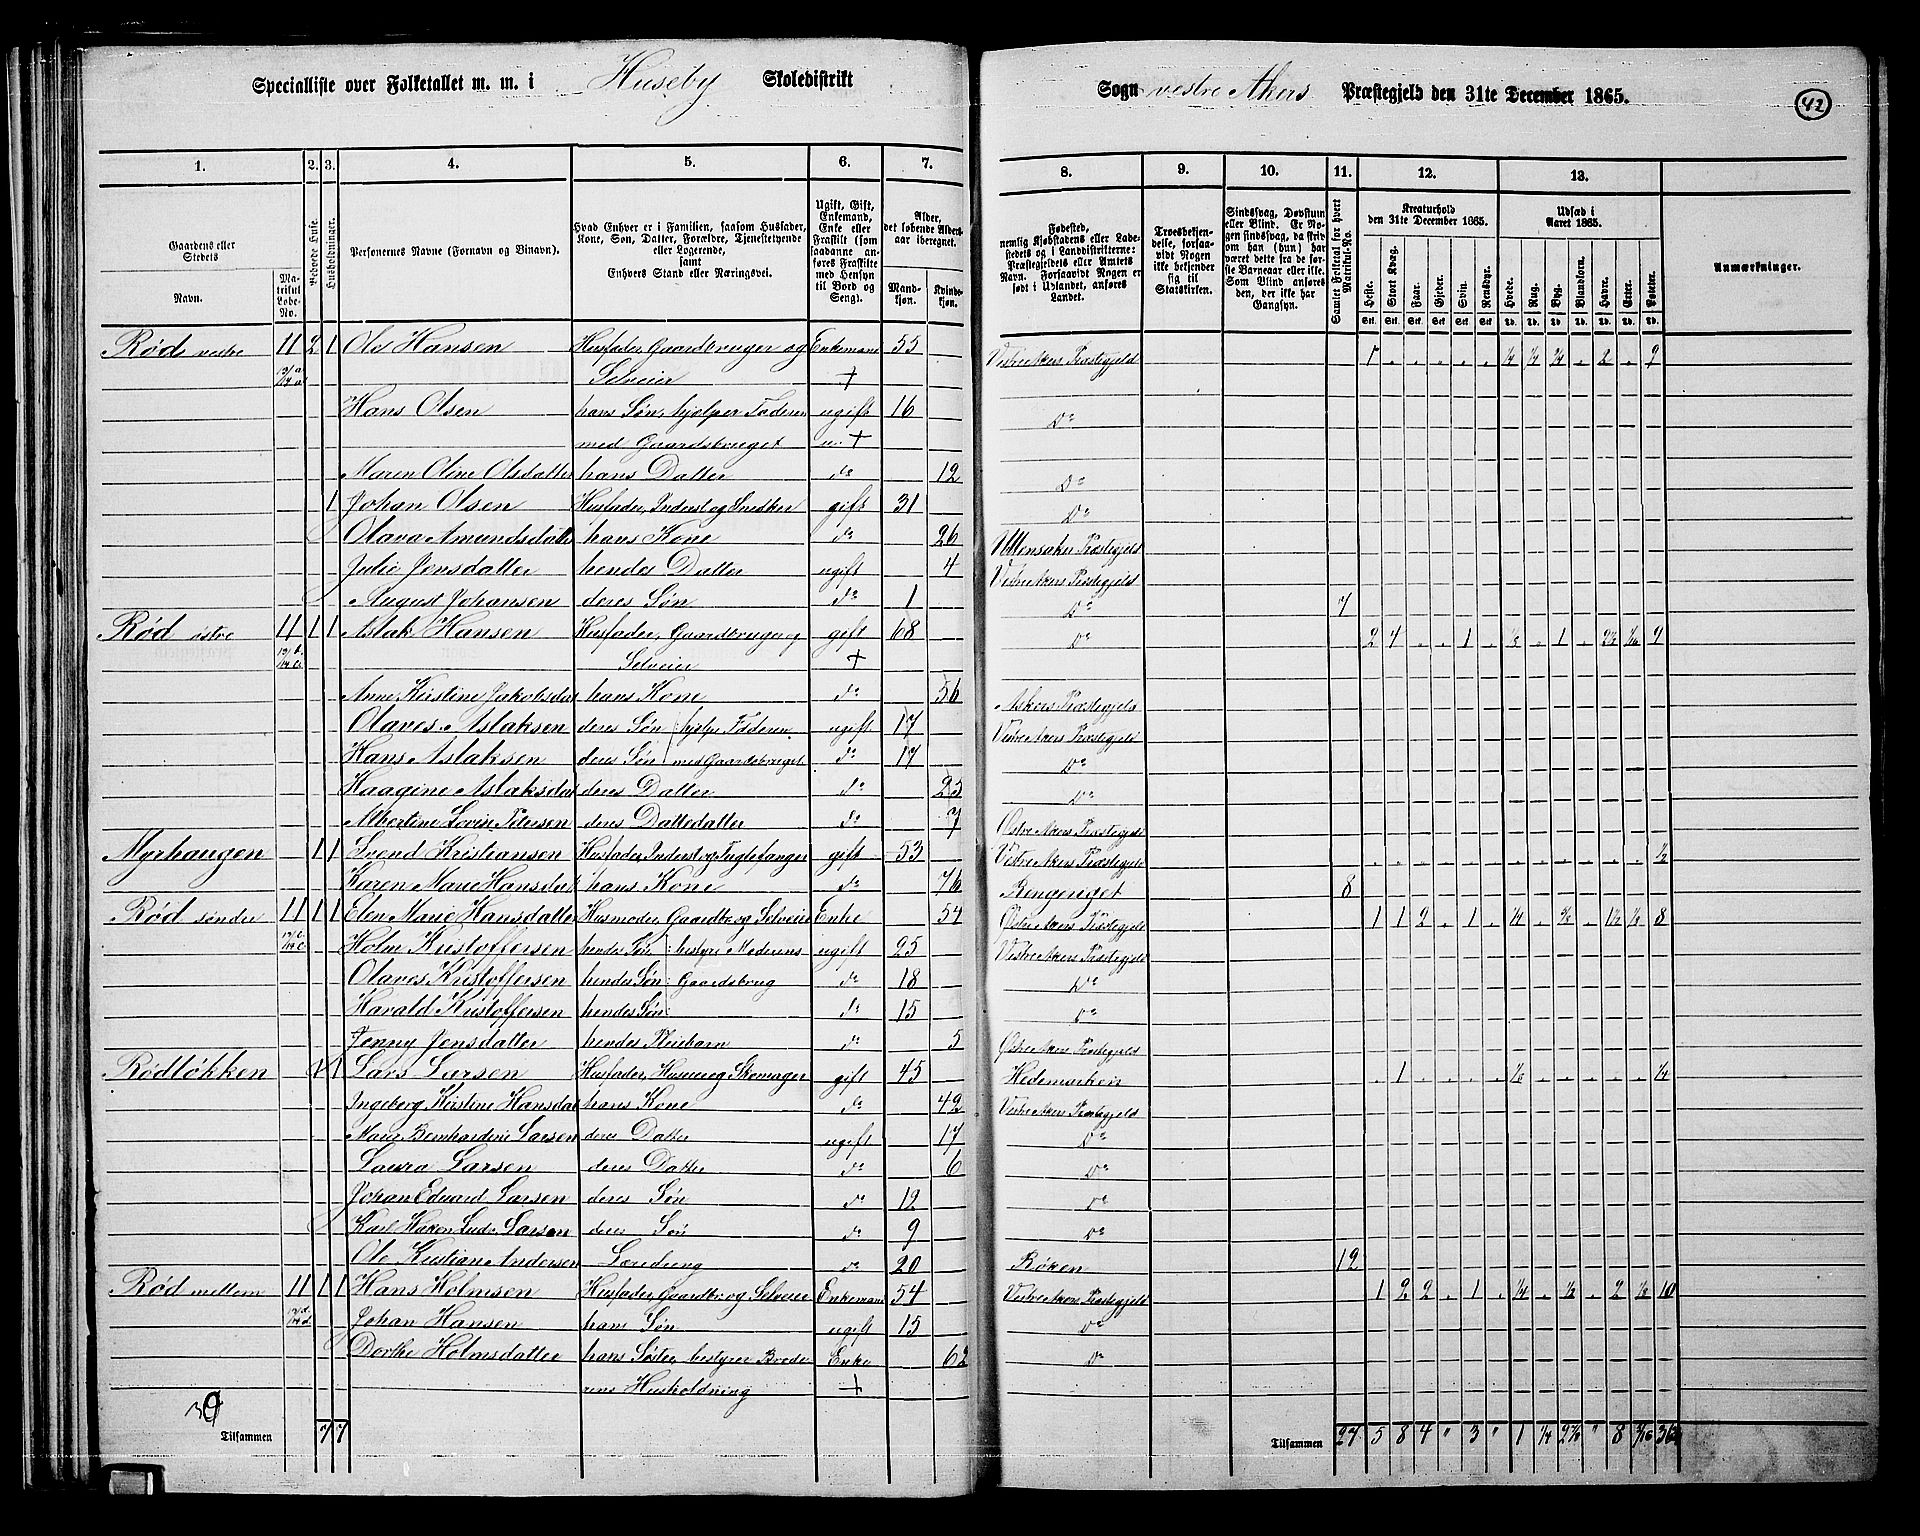 Specialliste over Folketallet m. m. i Huseby Skoledistrikt Sogn vestre Akers Præstegjeld den 31te December 1865. 42
1. 2. 3. 4. 5. 6. 7. 8. 9. 10. 11. 12. 13.
Gaardens eller Stedets Navn. Matrikul Løbe-No. Beboede Huse. Husholdninger. Personernes Navne (Fornavn og Binavn). Hvad Enhver er i Familien, saasom Husfader, Kone, Søn, Datter, Forældre, Tjenestetyende eller Logerende, samt Enhvers Stand eller Næringsvei. Ugift, Gift, Enkemand, Enke eller Fraskilt (som saadanne anføres Fraskilte med Hensyn til Bord og Seng). Alder, det løbende Aldersaar iberegnet. Mandkjøn. Kvindekjøn.
Fødested, nemlig Kjøbstadens eller Ladestedets og i Landdistrikterne: Præstegjeldets eller Amtets Navn. Forsaavidt Nogen er født i Udlandet, anføres Landet. Troesbekjendelse, forsaavidt Nogen ikke bekjender sig til Statskirken. Sindssvag, Døvstum eller Blind. Er Nogen sindssvag, da skrives om han (hun) har været dette fra de første Barneaar eller ikke. Som Blind anføres den, der ikke har Gangsyn. Samlet Folketal for hvert Matrikul-No. Kreaturhold den 31te December 1865. Heste. Stort Kvæg. Faar. Gjeder. Svin. Rensdyr. Udsæd i Aaret 1865. Hvede. Rug. Byg. Blandkorn. Havre. Erter. Poteter. Anmærkninger.
Rød vestre 11 2 1 Ole Hansen Husfader, Gaardbruger og Enkemand 55 Vestre Akers Præstegjeld 1 . . . . . ¼ ¼ ¾ . 2 . 9
Selveier +
Hans Olsen hans Søn, hjelper Faderen ugift 16 Do
med Gaardsbruget +
Maren Oline Olsdatter hans Datter do 12 Do
1 Johan Olsen Husfader, Inderst og Snedker gift 31 Do
Olava Amundsdatt hans Kone do 26 Ullensaker Præstegjeld
Julie Jensdatter hendes Datter ugift 4 Vestre Akers Præstegjeld
August Johansen deres Søn do 1 Do 7
Rød østre 11 1 1 Aslak Hansen Husfader, Gaardbruger og gift 68 Do 2 4 . . 1 . . 1 . 9
Selveier +
Anne Kirstine Jakobsdat hans Kone do 56 Askers Præstegjeld
Olaves Aslaksen deres Søn hjelpe Faderen ugift 17 Vestre Akers Præstegjeld
Hans Aslaksen deres Søn med Gaardsbruget do 17 Do
Haagine Aslaksdat deres Datter do 25 Do
Albertine Lovise Petersen deres Dattedatter do 7 Østre Akers Præstegjeld
Myrhaugen 1 1 Svend Kristiansen Husfader, Inderst og Fuglefanger gift 53 Vestre Akers Præstegjeld ½
Karen Marie Hansdatt hans Kone do 76 Ringeriget 8
Rød søndre 11 1 1 Elen Marie Hansdatter Husmoder, Gaardbr og Selveier Enke 54 Østre Akers Præstegjeld 1 1 2 . 1 . ¼ . . 1½ 8
Holm Kristoffersen hendes Søn bestyre Moderens ugift 25 Vestre Akers Præstegjeld
Olaves Kristoffersen hendes Søn Gaardsbrug do 18 Do
Harald Kristoffersen hendes Søn do 15 Do
Jenny Jensdatter hendes Pleiebarn do 5 Østre Akers Præstegjeld
Rødløkken 1 1 Lars Larsen Husfader, Husmand og Skomager gift 45 Hedemarken . 1 . . . . . . . . . ¼
Ingeborg Kirstine Hansdat hans Kone do 42 Vestre Akers Præstegjeld
Marie Bernhardine Larsen deres Datter ugift 17 Do
Laura Larsen deres Datter do 6 Do
Johan Eduard Larsen deres Søn do 12 Do
Karl Hakon Ludv. Larsen deres Søn do 9 Do
Ole Kristian Andersen Læredreng do 20 Røken 12
Rød mellem 11 1 1 Hans Holmsen Husfader, Gaardbr og Selveier Enkemand 54 Vestre Akers Præstegjeld 1 2 2 . 1 . ¼ . ½ . 2 10
Johan Hansen hans Søn ugift 15 Do
Dorthe Holmsdatter hans Søster, bestyrer Brode Enke 62 Do
rens Husholdning +
30
Tilsammen 7 7 Tilsammen 27 5 8 4 " 3 " 1 ¼ " 8 36